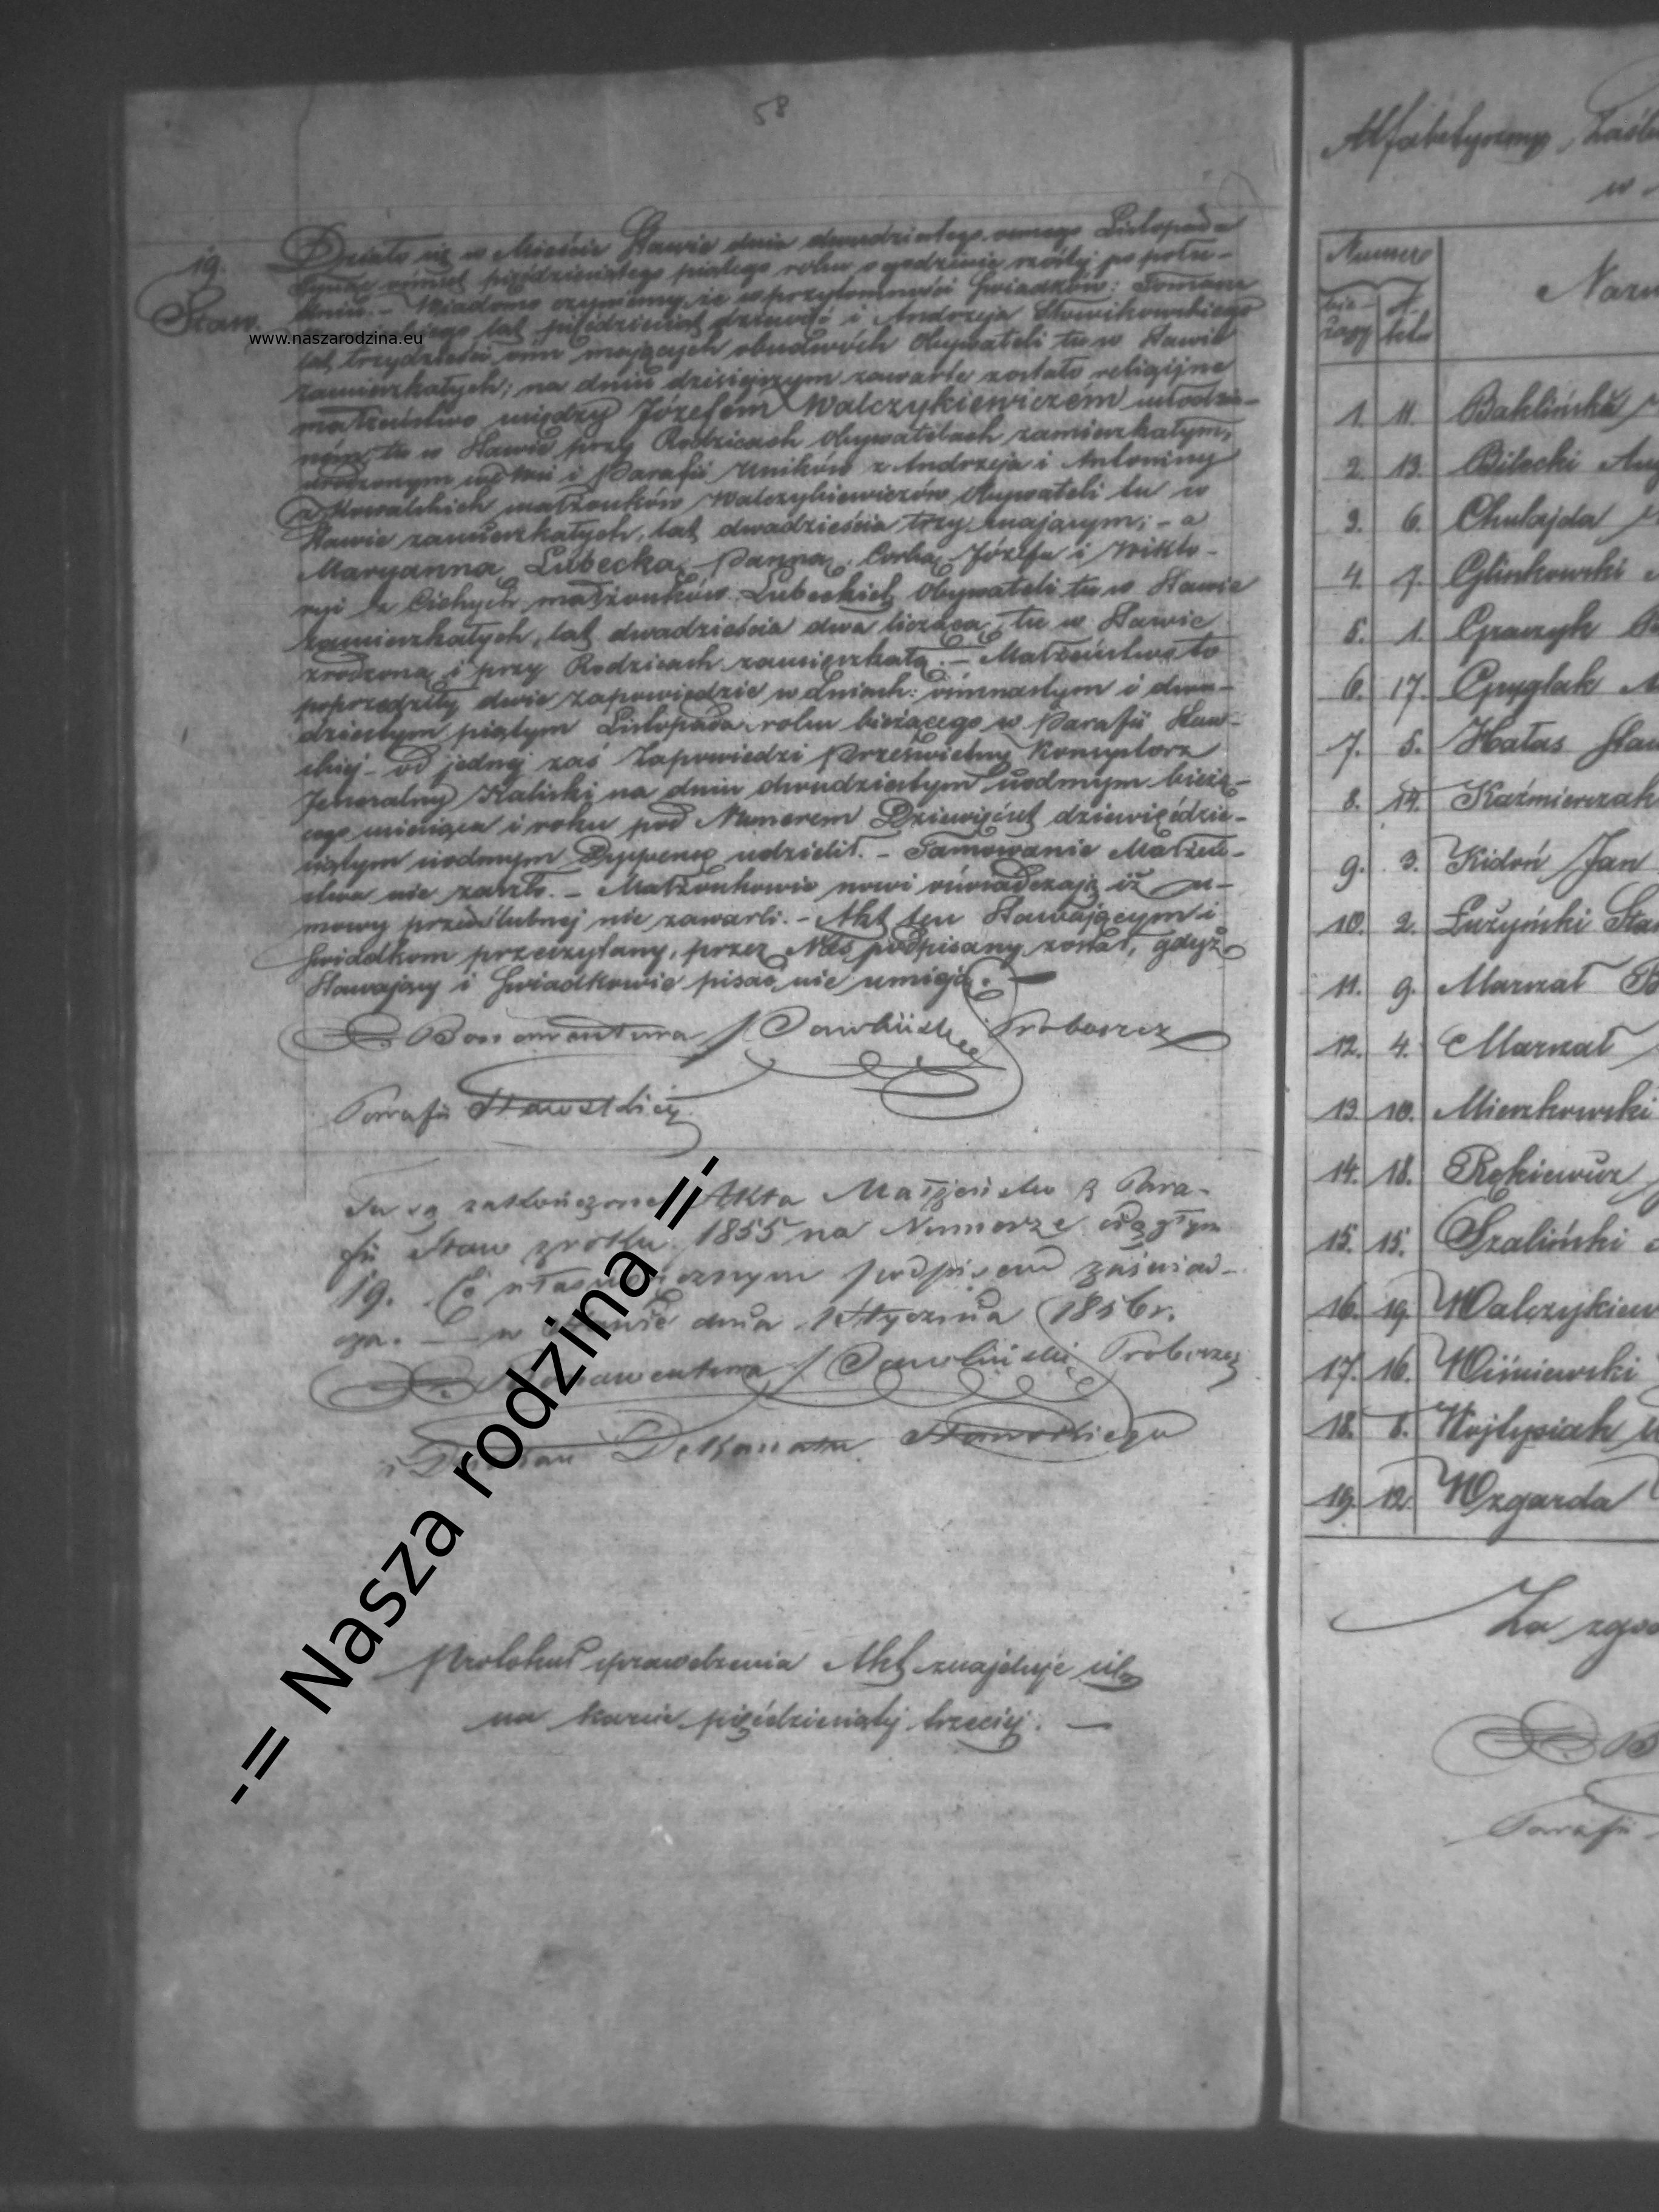 58
19.
Staw
Działo się w Mieście Stawie dnia dwudziestego osmego Listopada
Tysiąc ośmset pięćdziesiątego piątego roku o godzinie szóstéj po połu-
dniu. – Wiadomo czyniemy, że w przytomności Świadków: Tomasza
lat pięćdziesiąt dziewięć i Andrzeja Słowikowskiego
www.naszarodzina.eu
lat trzydzieści ośm mających obudwóch Obywateli tu w Stawie
zamieszkałych; na dniu dzisiejszym zawarte zostało religijne
małżeństwo między Józefem Walczykiewiczém młodzia-
nem, tu w Stawie przy Rodzicach Obywatelach zamieszkałym,
urodzonym we Wsi i Parafii Uników z Andrzeja i Antoniny
z Kowalskich małżonków Walczykiewiczów Obywateli tu w
Stawie zamieszkałych, lat dwadzieścia trzy mającym; – a
Maryanną Lubecką, Panną, Corką Józefa i Wikto-
ryi z Cichych małżonków Lubeckich Obywateli tu w Stawie
zamieszkałych, lat dwadzieścia dwa liczącą, tu w Stawie
zrodzoną i przy Rodzicach zamieszkałą. – Małżeństwo to
poprzedziły dwie Zapowiedzie w dniach: ośmnastym i dwu-
dziestym piątym Listopada roku bieżącego w Parafii Staw-
skiej – od jednéj zaś Zapowiedzi Prześwietny Konsystorz
Jeneralny Kaliski na dniu dwudziestym siodmym bieżą-
cego miesiąca i roku pod Numerem Dziewięćset dziewięćdzie-
siątym siodmym Dyspensę udzielił. – Tamowanie Małżeń-
stwa nie zaszło. – Małżonkowie nowi oświadczają iż u-
mowy przedślubnej nie zawarli. – Akt ten Stawającym i
Świadkom przeczytany, przez Nas podpisany został, gdyż
Stawający i Świadkowie pisać nie umieją. –
X. Bonawentura Pawliński Proboszcz
Parafii Stawskiéj
Tu są zakończone Akta Małżeństw z Para-
fii Staw z roku 1855 na Numerze ciągłym
19. Co własnoręcznym podpisem zaświad-
cza. – w Stawie dnia 1 Stycznia 1856 r.
X. Bonawentura Pawliński Proboszcz
i Dziekan Dekanatu Stawskiego
Protokuł sprawdzenia Akt znajduje się
na karcie pięćdziesiątéj trzeciéj. –
-= Nasza rodzina =-
Alfabetyczny
w
Numer
Akt
1. 11. Bakliński
2. 13. Bilecki Aug
3. 6. Chulajda
4. 7. Glinkowski
5. 1. Graczyk
6. 17. Gryglak
7. 5. Hałas
8. 14. Kaźmierczak
9. 3. Kidoń Jan
10. 2. Łużyński Sta
11. 9. Marszał B
12. 4. Marszał
13. 10. Mieszkowski
14. 18. Rękiewicz
15. 15. Szaliński
16. 19. Walczykiew
17. 16. Wiśniewski
18. 8. Wojtysiak
19. 12. Wzgarda
Za zgo
X. B
Parafii